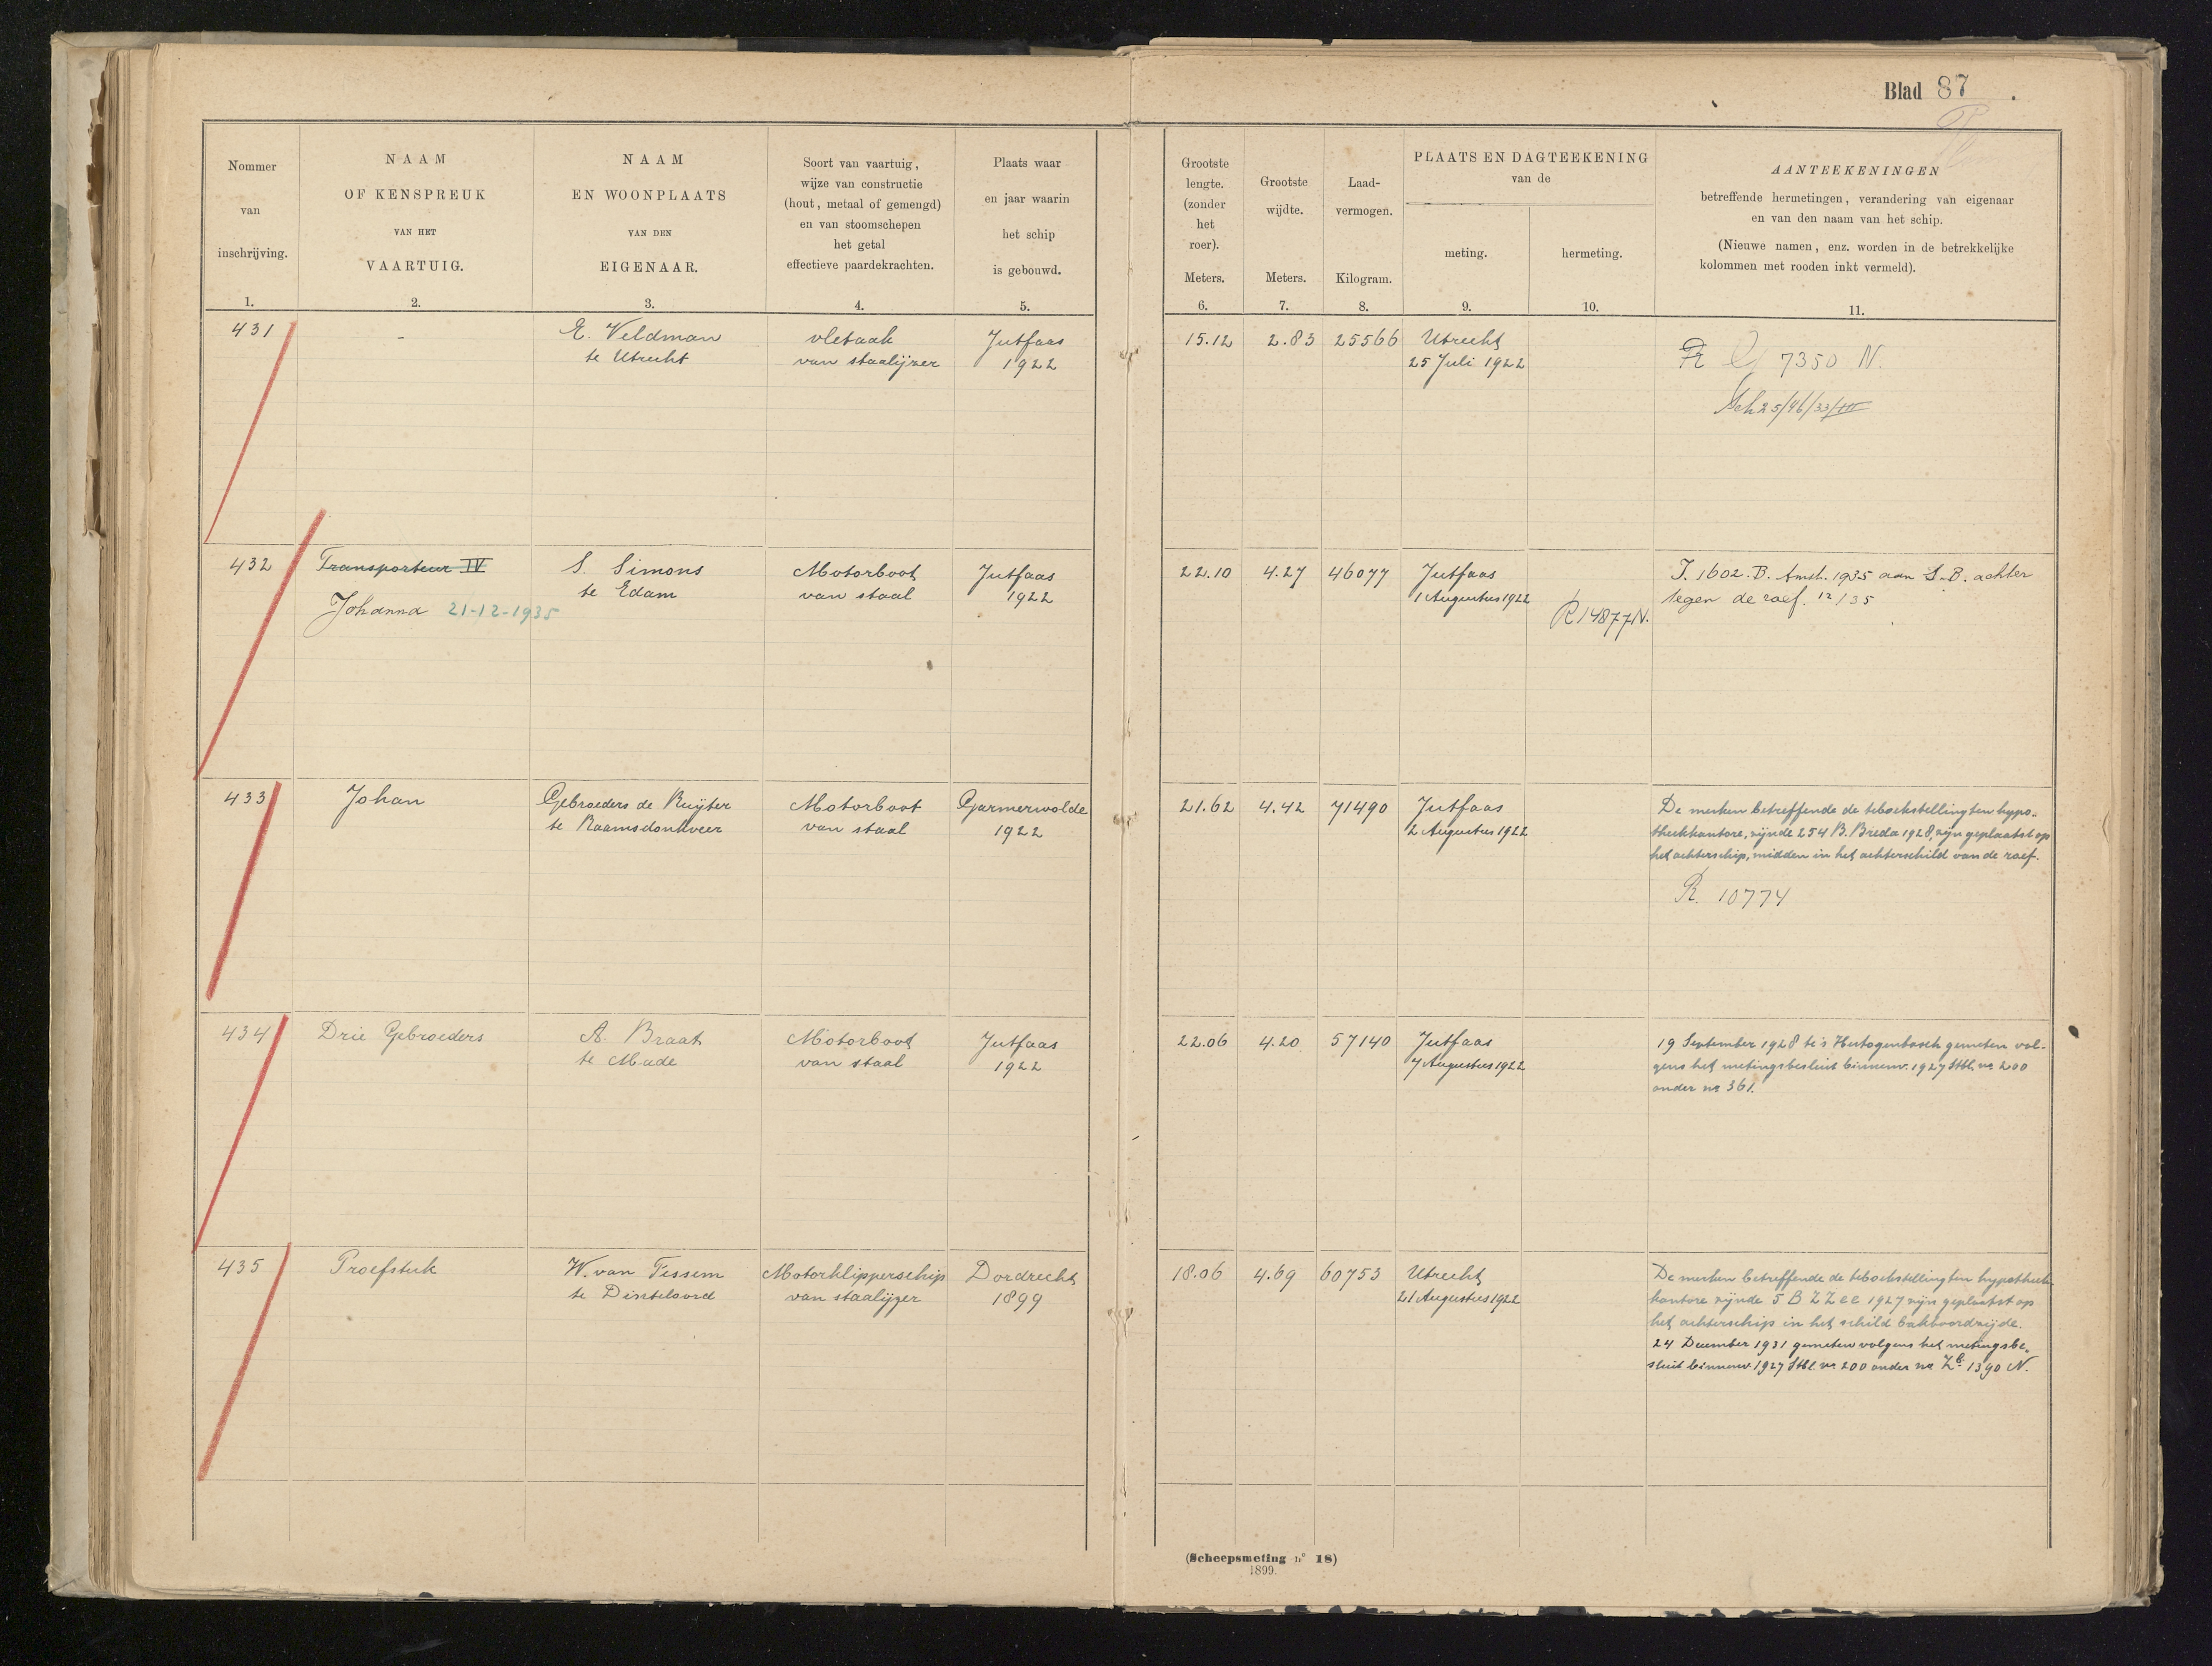 Blad 87.
Nommer
van
inschrijving.
1.
NAAM
OF KENSPREUK
VAN HET
VAARTUIG.
2.
NAAM
EN WOONPLAATS
VAN DEN
EIGENAAR.
3.
Soort van vaartuig,
wijze van constructie
(hout, metaal of gemengd)
en van stoomschepen
het getal
effectieve paardekrachten.
4.
Plaats waar
en jaar waarin
het schip
is gebouwd.
5.
Grootste
lengte.
(zonder
het
roer).
Meters.
6.
Grootste
wijdte.
Meters.
7.
Laad-
vermogen.
Kilogram.
8.
PLAATS EN DAGTEEKENING
van de
meting.
9.
hermeting.
10.
AANTEEKENINGEN
betreffende hermetingen, verandering van eigenaar
en van den naam van het schip.
(Nieuwe namen, enz. worden in de betrekkelijke
kolommen met rooden inkt vermeld).
11.
431
-
E. Veldman
te Utrecht
vletaak
van staalijzer
Jutfaas
1922
15.12
2.83
25566
Utrecht
25 Juli 1922
7350 N.
432
Transporteur IV
Johanna 21-12-1935
S. Simons
te Edam
Motorboot
van staal
Jutfaas
1922
22.10
4.27
46077
Jutfaas
1 Augustus 1922
R 14877 N.
T. 1602. B. Amst. 1935 aan S.B. achter
tegen de roef. 12/35
433
Johan
Gebroeders de Ruijter
te Raamsdonkveer
Motorboot
van staal
Garmerwolde
1922
21.62
4.42
71490
Jutfaas
2 Augustus 1922
De merken betreffende de teboekstelling ten hypo-
theekkantore, zijnde 254 B. Breda 1928, zijn geplaatst op
het achterschip, midden in het achterschild van de roef.
R. 10774
434
Drie Gebroeders
A. Braat
te Made
Motorboot
van staal
Jutfaas
1922
22.06
4.20
57140
Jutfaas
7 Augustus 1922
19 September 1928 te 's Hertogenbosch gemeten vol-
gens het metingsbesluit binnenv. 1927 Stbl. no 200
onder no 361.
435
Proefstuk
W. van Tessem
te Dinteloord
Motorklipperschip
van staalijzer
Dordrecht
1899
18.06
4.69
60753
Utrecht
21 Augustus 1922
De merken betreffende de teboekstelling ten hypotheek-
kantore zijnde 5 B ZZee 1927 zijn geplaatst op
het achterschip in het schild bakboordzijde.
24 December 1931 gemeten volgens het metingsbe-
sluit binnenv. 1927 Stbl. no 200 onder no Zb. 1390 N.
(Scheepsmeting n° 18)
1899.